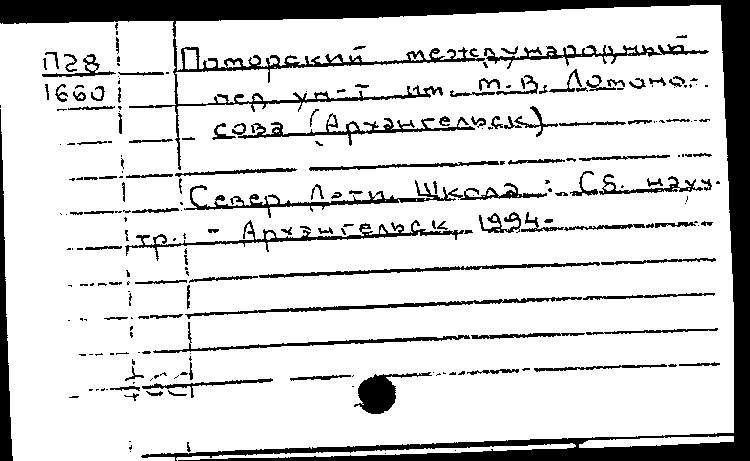 П28
1660
Поморский международный
пед. ун-т им. М.В. Ломоно-
сова (Архангельск)
Север. Дети. Школа : Сб. науч.
тр. - Архангельск, 1994-